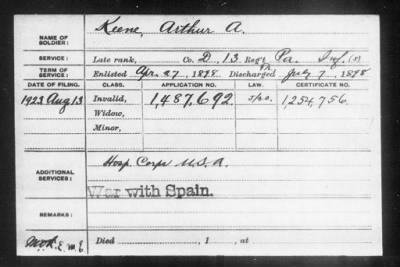 NAME OF SOLDIER: Keene, Arthur A.
SERVICE: Late rank, Co. D, 13. Reg't Pa. Inf.
TERM OF SERVICE: Enlisted Apr. 27, 1898. Discharged July 7, 1898
DATE OF FILING. CLASS. APPLICATION NO. LAW. CERTIFICATE NO.
1923 Aug 13 Invalid, 1,487,692 1,254,756.
Widow,
Minor,
ADDITIONAL SERVICES: Hosp. Corps U.S.A.
War with Spain.
REMARKS:
Died , 1 , at